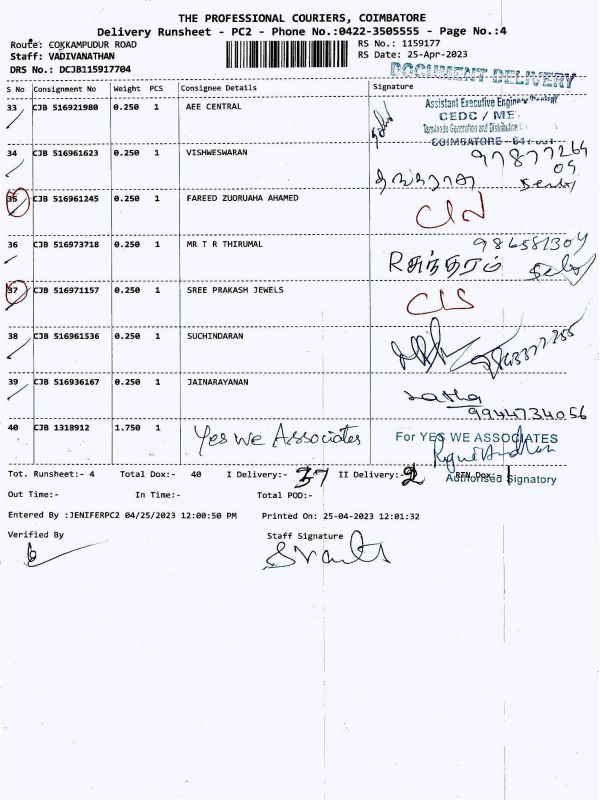 THE PROFESSIONAL COURIERS, COIMBATORE
Delivery Runsheet - PC2 - Phone No.:0422-3505555 - Page No.:4
Route: COKKAMPUDUR ROAD
RS No.: 1159177
Staff: VADIVANATHAN
RS Date: 25-Apr-2023
DRS No.: DCJB115917704
DOCUMENT DELIVERY
S No Consignment No Weight PCS Consignee Details Signature
33 CJB 516921980 0.250 1 AEE CENTRAL
Assistant Executive Engineer
CEDC / ME
COIMBATORE
34 CJB 516961623 0.250 1 VISHWESWARAN
35 CJB 516961245 0.250 1 FAREED ZUORUAHA AHAMED
36 CJB 516973718 0.250 1 MR T R THIRUMAL
R சுந்தரம்
37 CJB 516971157 0.250 1 SREE PRAKASH JEWELS
38 CJB 516961536 0.250 1 SUCHINDARAN
39 CJB 516936167 0.250 1 JAINARAYANAN
Latha
9944734056
40 CJB 1318912 1.750 1 Yes We Associates For YES WE ASSOCIATES
Authorised Signatory
Tot. Runsheet:- 4 Total Dox:- 40 I Delivery:- 37 II Delivery:- 2 RTN Dox:- 1
Out Time:- In Time:- Total POD:-
Entered By :JENIFERPC2 04/25/2023 12:00:50 PM Printed On: 25-04-2023 12:01:32
Verified By Staff Signature